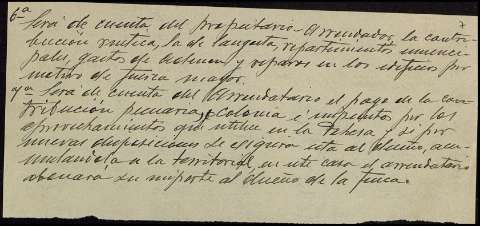 6ª Será de cuenta del propietario-Arrendador, la contri-
bución rústica, la de langosta, repartimientos munici-
pales, gastos de                y reparos en los edificios por
motivo de fuerza mayor.
7ª Será de cuenta del Arrendatario el pago de la con-
tribución pecuaria, y colonia é impuestos por los
aprovechamientos que utilice en la Dehesa y si por
nuevas disposiciones se exigiera ésta al dueño, acu-
mulándola a la territorial en este caso el arrendatario
abonará su importe al dueño de la finca.